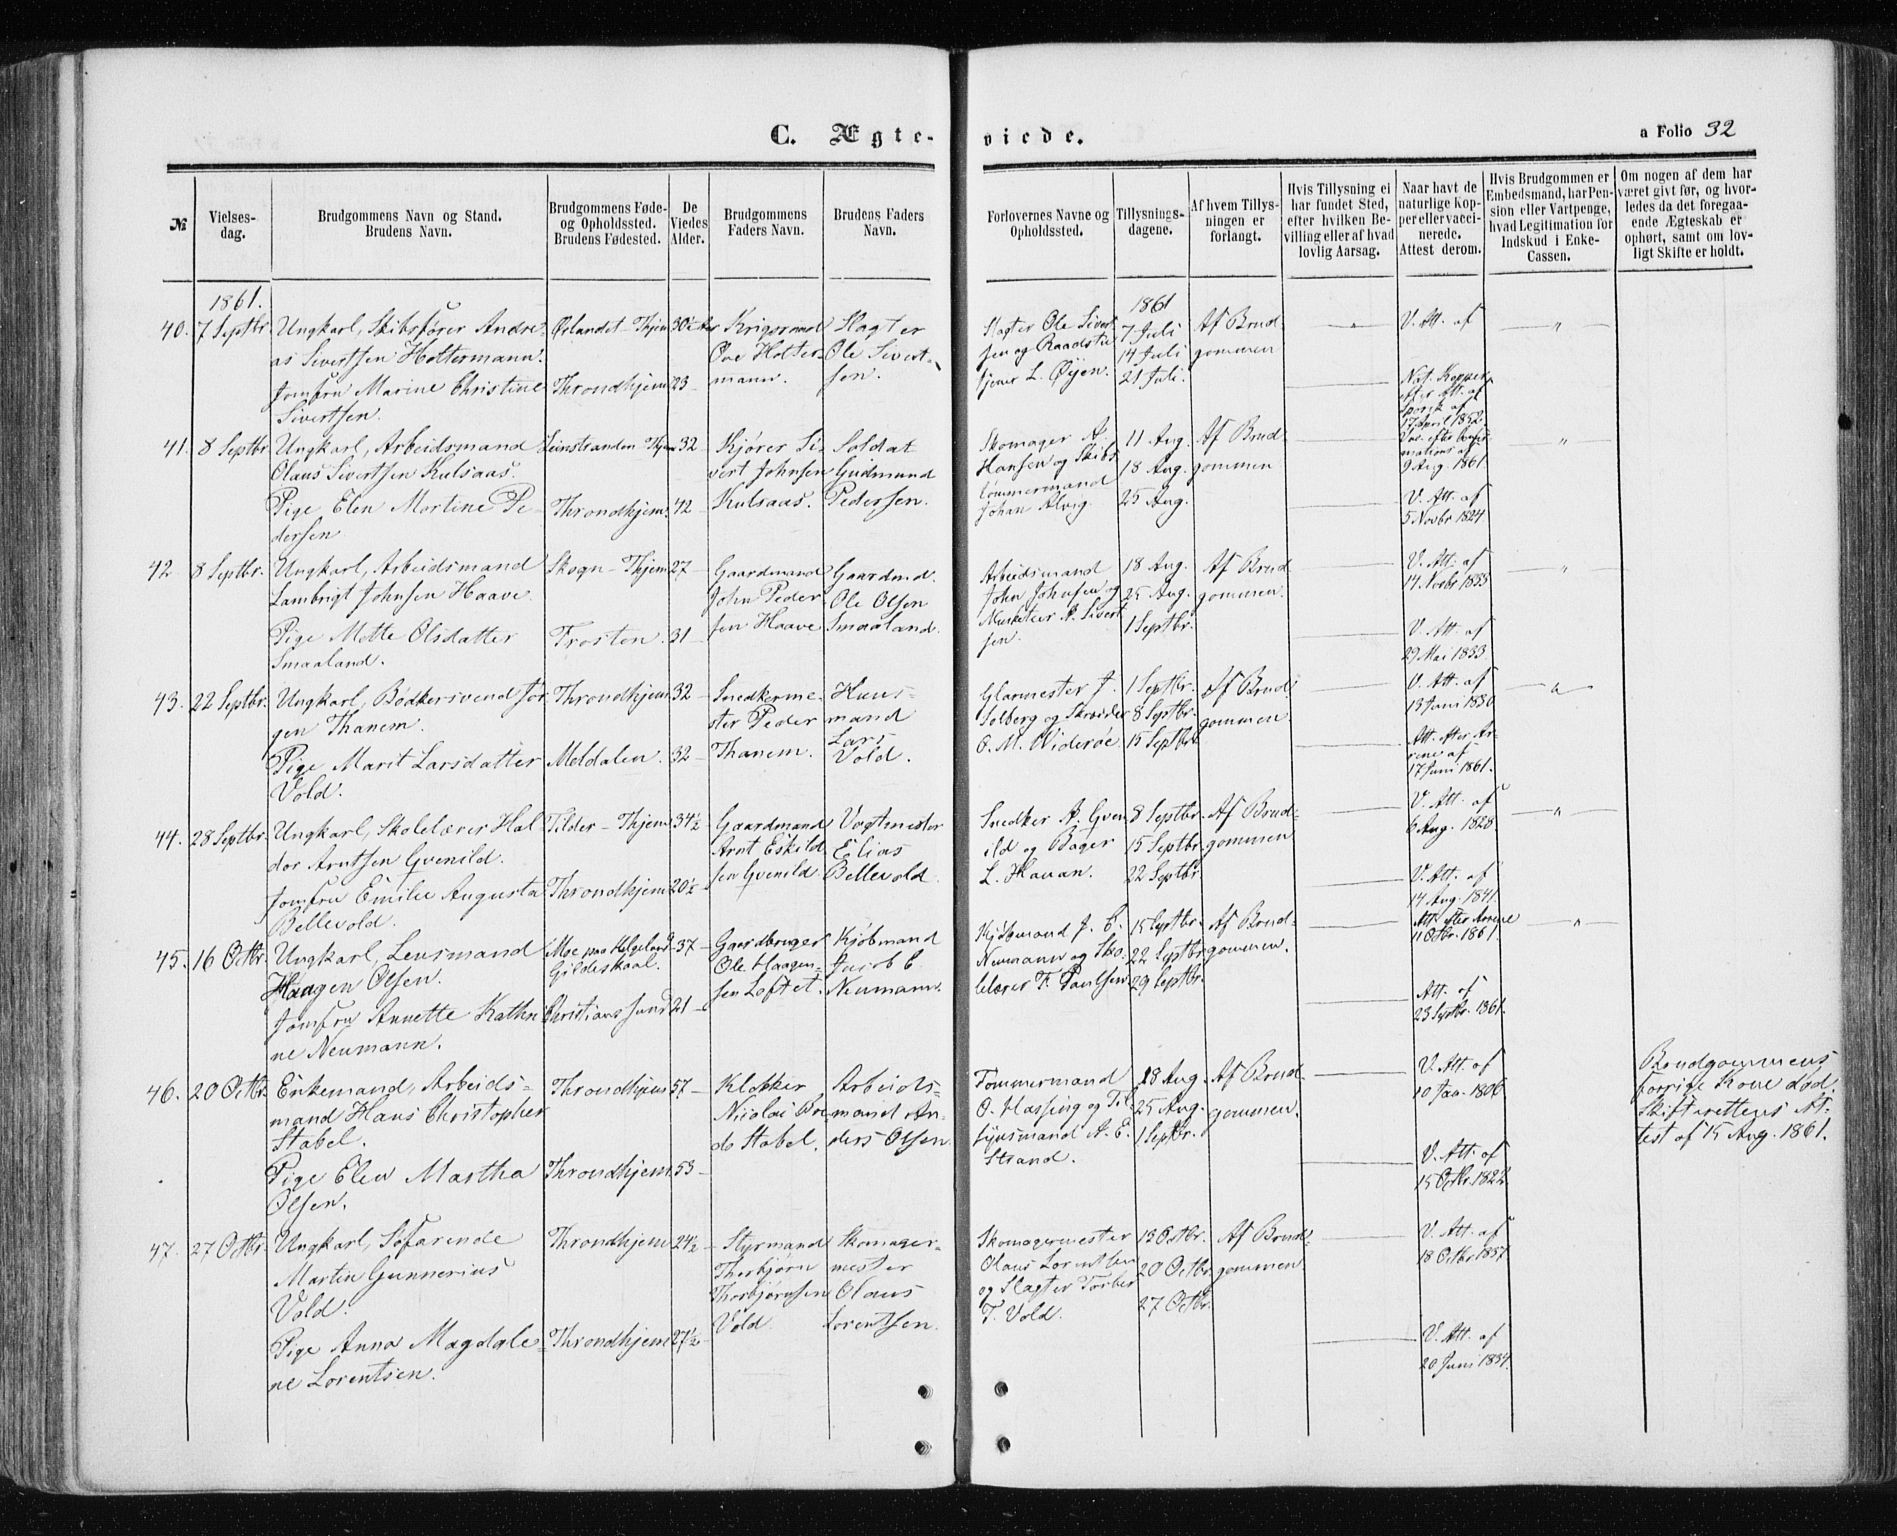 C. Ægte-
viede.
a Folio 32
№
Vielses-
dag.
Brudgommens Navn og Stand.
Brudens Navn.
Brudgommens Føde-
og Opholdssted.
Brudens Fødested.
De
Viedes
Alder.
Brudgommens
Faders Navn.
Brudens Faders
Navn.
Forlovernes Navne og
Opholdssted.
Tillysnings-
dagene.
Af hvem Tillys-
ningen er
forlangt.
Hvis Tillysning ei
har fundet Sted,
efter hvilken Be-
villing eller af hvad
lovlig Aarsag.
Naar havt de
naturlige Kop-
per eller vacci-
nerede.
Attest derom.
Hvis Brudgommen er
Embedsmand, har Pen-
sion eller Vartpenge,
hvad Legitimation for
Indskud i Enke-
Cassen.
Om nogen af dem har
været givt før, og hvor-
ledes da det foregaa-
ende Ægteskab er
ophørt, samt om lov-
ligt Skifte er holdt.
1861.
40. 7 Septbr.
Ungkarl, Skibsfører Andre-
as Sivertsen Holtermann.
Jomfru Marine Christine
Sivertsen.
Ørlandet - Thjem
Throndhjem
30½ Aar
23
Krigsraad
Ove Holter-
mann.
Slagter
Ole Sivert-
sen.
Slagter Ole Sivert
sen og Raadstu
tjener L. Øyen.
1861
7 Juli
14 Juli
21 Juli.
Af Brud
gommen
V. Att. af
Nat. Kopper
efter Att. af
17 April 1852.
41. 8 Septbr
Ungkarl, Arbeidsmand
Olaus Sivertsen Kulsaas.
Pige Elen Martine Pe-
dersen
Leinstranden Thjem
Throndhjem.
32
42
Kjører Si-
vert Johnsen
Kulsaas.
Soldat
Gudmund
Pedersen.
Skomager A.
Hansen og Skibs
tømmermand
Johan Alvig.
11 Aug.
18 Aug.
25 Aug.
Af Brud
gommen
Vac. efter Confir
mations af
9 Aug. 1861.
V. Att. af
5 Novbr 1824.
42 8 Septbr.
Ungkarl, Arbeidsmand
Lambrigt Johnsen Haave.
Pige Mette Olsdatter
Smaaland.
Skogn - Thjem
Frosten.
27
31
Gaardmand
John Peder
sen Haave
Gaardmd.
Ole Olsen
Smaaland.
Arbeidsmand
John Johnsen og
Musketeer P. Sivert
sen.
18 Aug.
25 Aug.
1 Septbr.
Af Brud
gommen.
V. Att. af
14 Novbr 1835
V. Att. af
29 Mai 1833
43. 22 Septbr.
Ungkarl, Bødkersvend Jør
gen Thanem.
Pige Marit Larsdatter
Vold.
Throndhjem
Meldalen.
32
32
Snedkerme-
ster Peder
Thanem.
Huus-
mand
Lars
Vold.
Glarmester J.
Solberg og Skrædder
O. M. Widerøe
1 Septbr.
8 Septbr.
15 Septbr.
Af Brud
gommen.
V. Att. af
13 Juni 1830
Att. efter Ar-
rene af
17 Juni 1861.
44. 28 Septbr.
Ungkarl, Skolelærer Hal
dor Arntsen Gvenild.
Jomfru Emilie Augusta
Bellevold.
Tilder - Thjem
Throndhjem
34½
20½
Gaardmand
Arnt Eskild
sen Gvenild
Vogtmester
Elias
Bellevold.
Snedker A. Gven
ild og Bager
L. Havan.
8 Septbr.
15 Septbr.
22 Septbr.
Af Brud-
gommen
V. Att. af
6 Aug. 1828
V. Att. af
14 Aug. 1841.
45. 16 Octbr.
Ungkarl, Lensmand
Haagen Olsen.
Jomfru Annette Kathri
ne Neumann.
Moe paa Helgeland
Gildeskaal.
Christianssund
37
21
Gaardbruger
Ole Haagen-
sen Loftet.
Kjøbmand
Jacob E
Neumann.
Kjøbmand J. E.
Neumann og Sko
lelærer F. Paulsen
15 Septbr.
22 Septbr.
29 Septbr.
Af Brud-
gommen.
Att. efter Arrene
11 Octbr. 1861.
Att. af
23 Septbr. 1861.
46. 20 Octbr.
Enkemand, Arbeids-
mand Hans Christopher
Stabel.
Pige Elen Martha
Olsen.
Throndhjem
Throndhjem
57
53
Klokker
Nicolai Bre-
do Stabel.
Arbeids-
mand An-
ders Olsen.
Tømmermand
O. Hassing og Til
synsmand A. E.
Strand.
18 Aug.
25 Aug.
1 Septbr.
Af Brud-
gommen.
V. Att. af
10 Jan. 1806
V. Att. af
15 Octbr. 1822
Brudgommens
forrige Kone død.
Skifterettens At-
test af 15 Aug. 1861.
47. 27 Octbr.
Ungkarl, Søfarende
Martin Gunnerius
Vold.
Pige Anna Magdale-
ne Lorentsen.
Throndhjem
Throndhjem
24½
27½
Styrmand
Thorbjørn
Thorbjørnsen
Vold
Skomager-
mester
Olaus
Lorentsen.
Skomagermester
Olaus Lorentsen
og Slagter Torber
T. Vold.
13 Octbr.
20 Octbr.
27 Octbr.
Af Brud-
gommen
V. Att. af
18 Octbr. 1837
V. Att. af
20 Juni 1834.